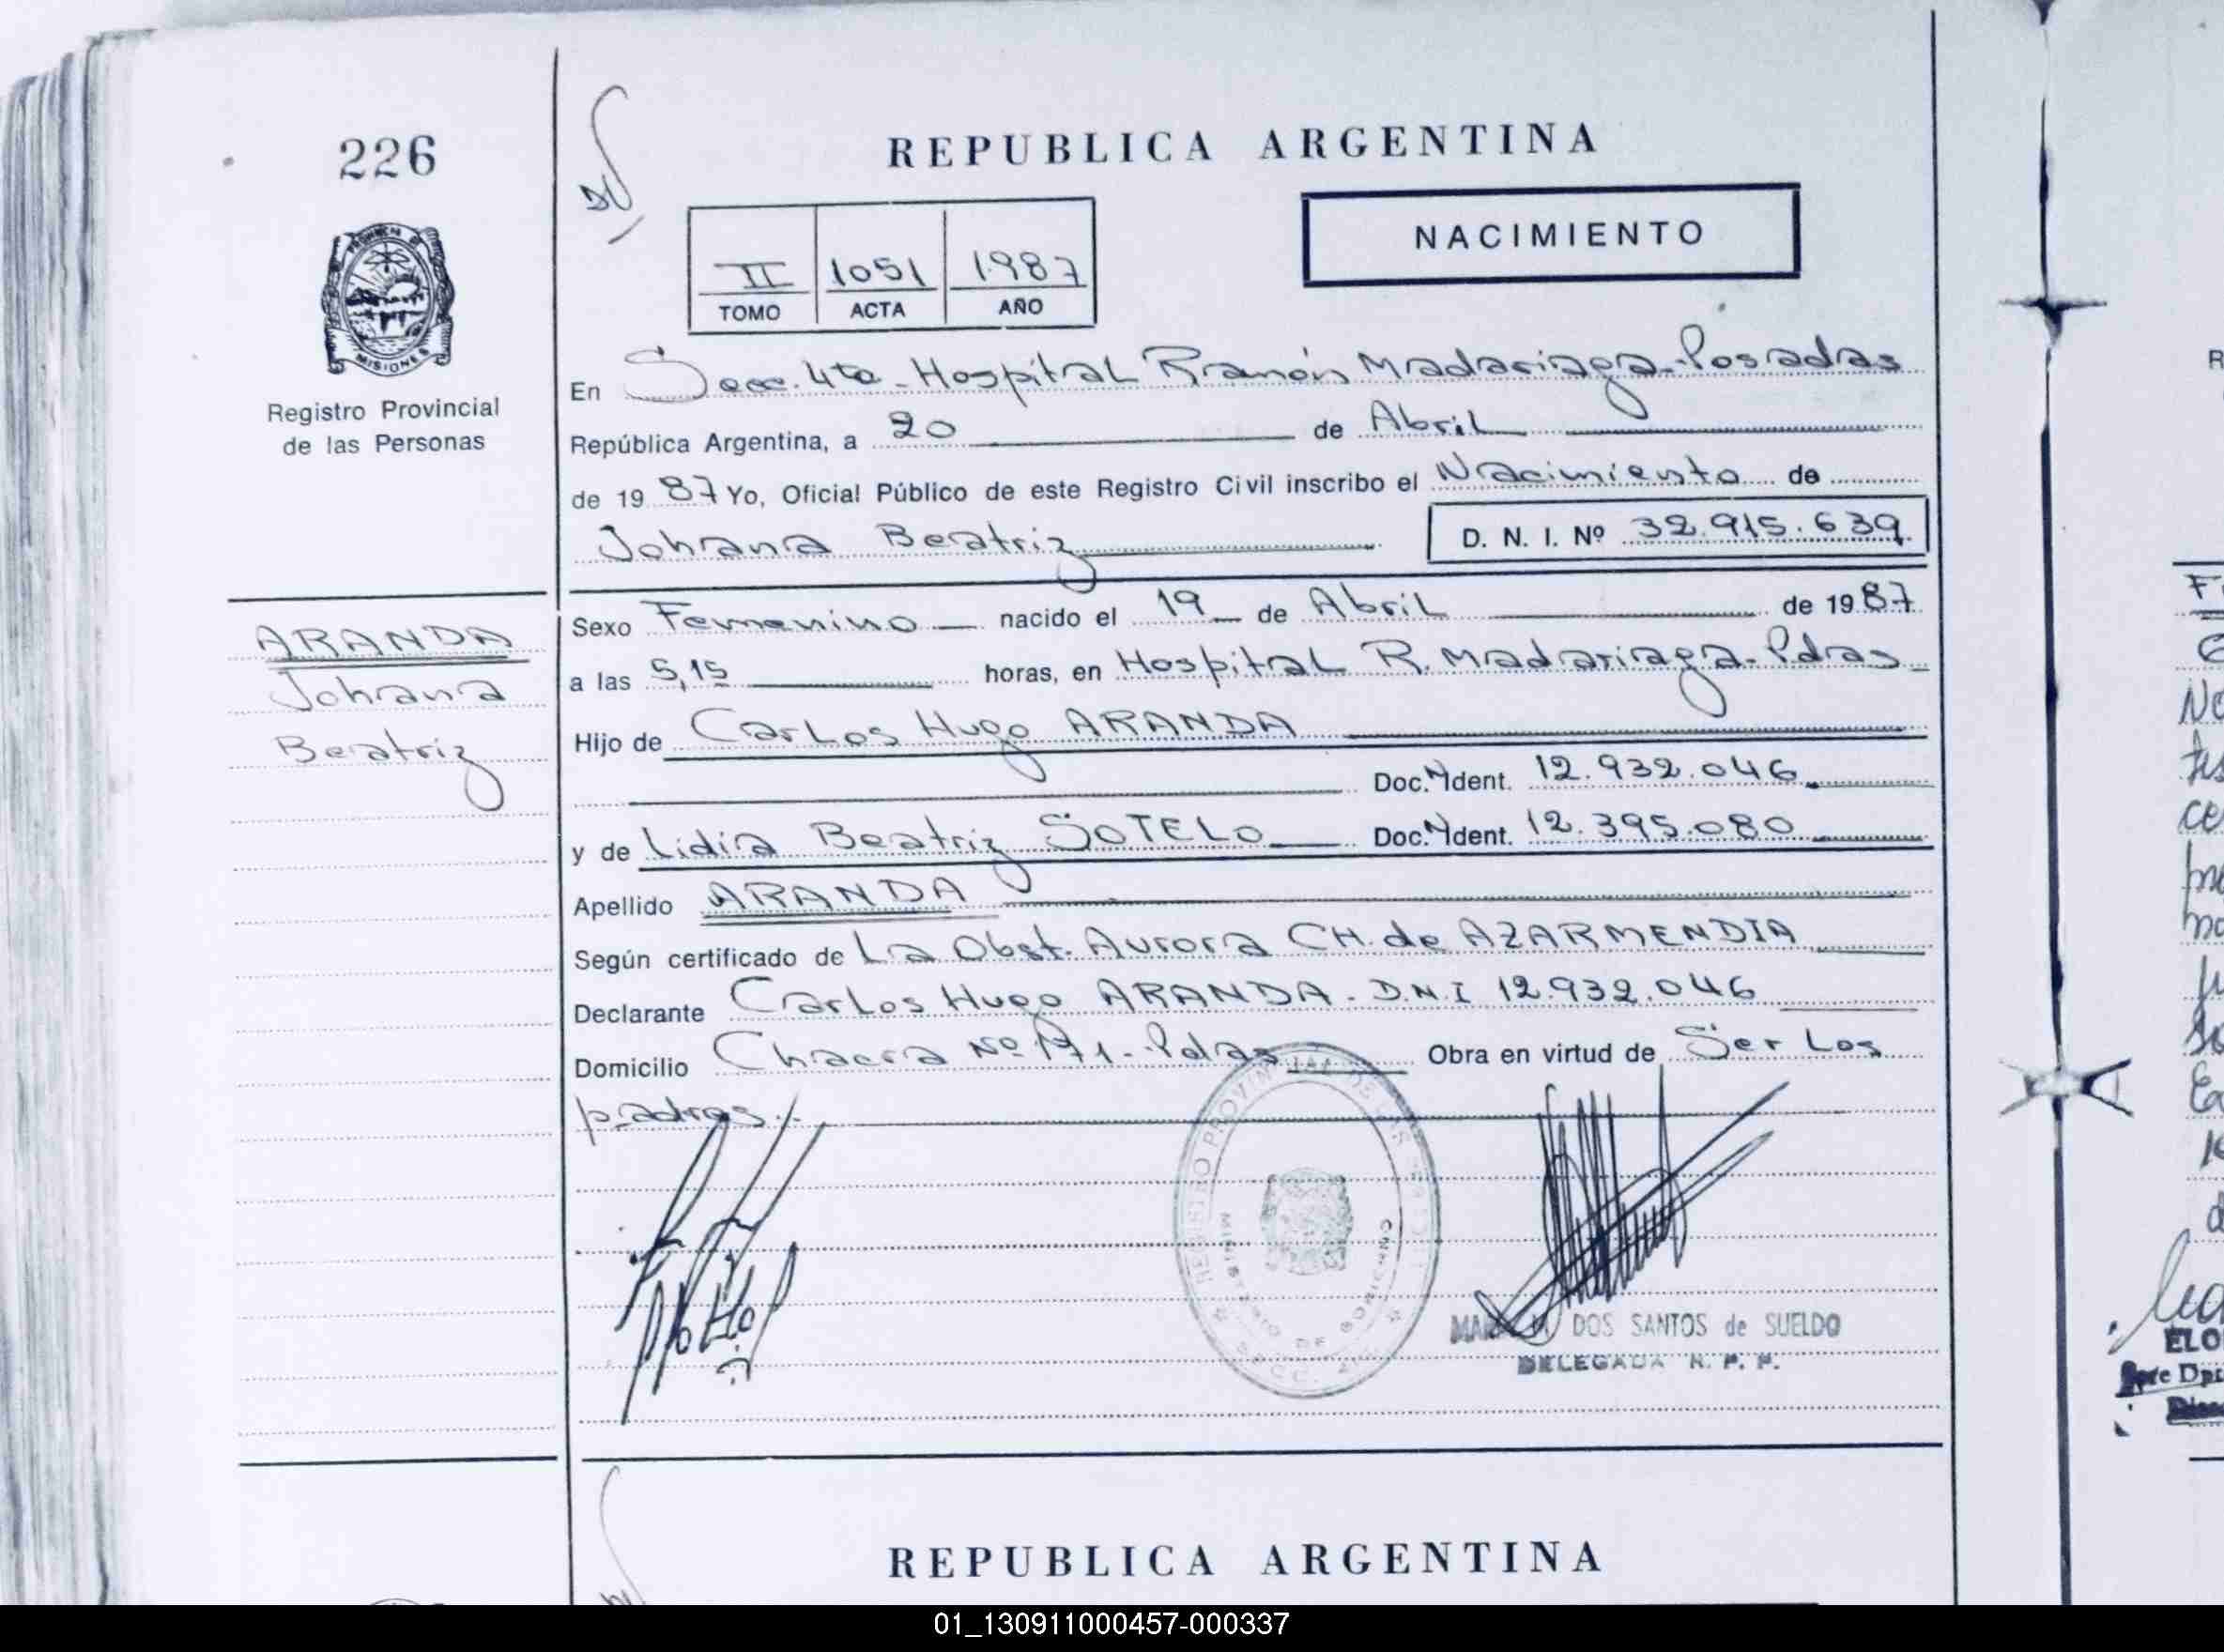 226
REPUBLICA ARGENTINA
NACIMIENTO
II 1051 1987
TOMO ACTA AÑO
PROVINCIA DE MISIONES
Registro Provincial
de las Personas
En Secc. 4ta - Hospital Ramón Madariaga - Posadas
República Argentina, a 20 de Abril
de 1987 Yo, Oficial Público de este Registro Civil inscribo el Nacimiento de
Johana Beatriz D. N. I. Nº 32.915.639
ARANDA
Johana
Beatriz
Sexo Femenino nacido el 19 de Abril de 1987
a las 5,15 horas, en Hospital R. Madariaga - Pdas
Hijo de Carlos Hugo ARANDA
Doc. N Ident. 12.932.046
y de Lidia Beatriz SOTELO Doc. N Ident. 12.395.080
Apellido ARANDA
Según certificado de La Obst. Aurora CH. de AZARMENDIA
Declarante Carlos Hugo ARANDA - D.N.I 12.932.046
Domicilio Chacra Nº 171 - Pdas Obra en virtud de Ser Los
padres
REGISTRO PROVINCIAL DE LAS
MINISTERIO DE GOBIERNO
SECC.
DOS SANTOS de SUELDO
DELEGADA R. P. P.
REPUBLICA ARGENTINA
01_130911000457-000337